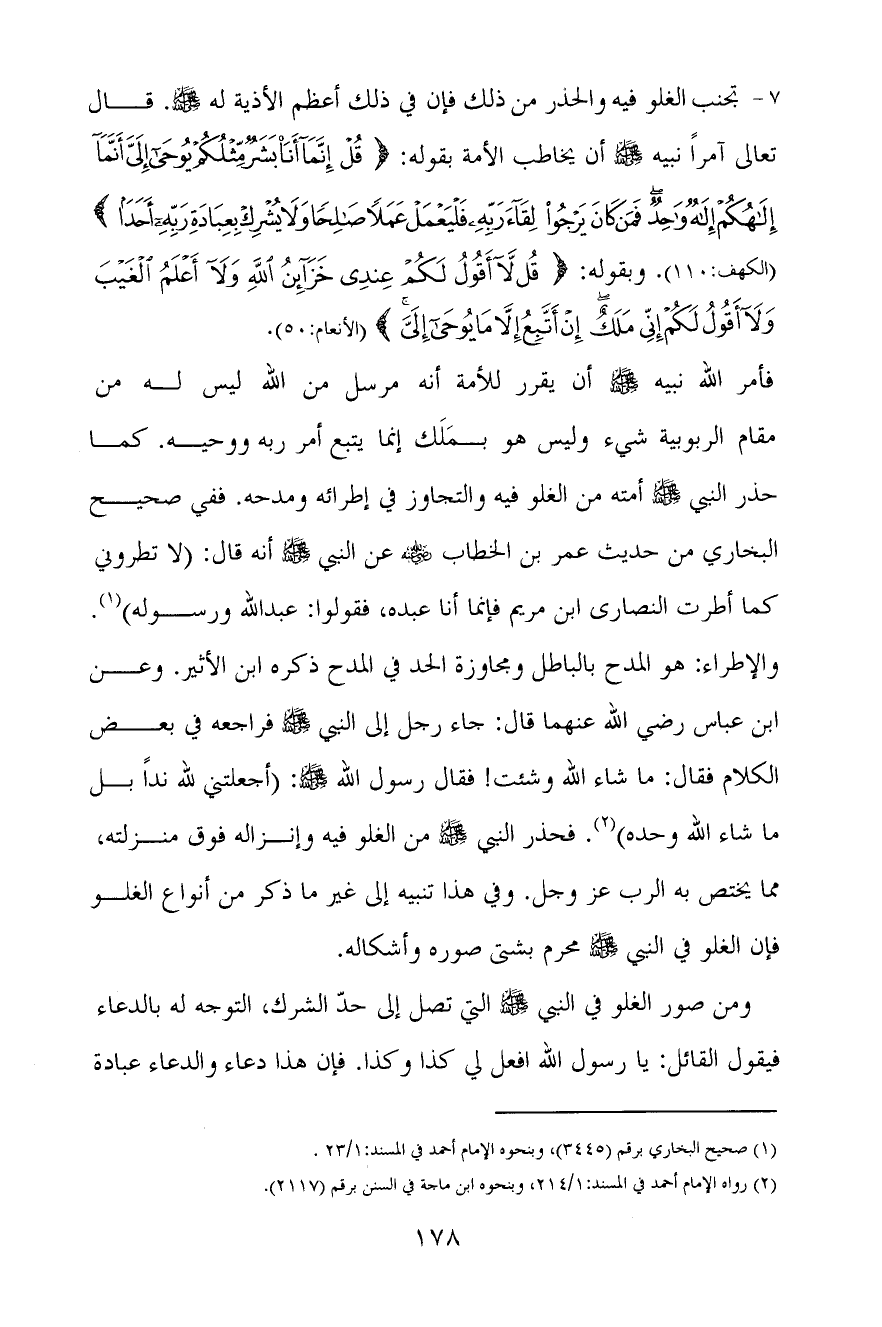 ٧- تجنب الغلو فيه والحذر من ذلك فإن في ذلك أعظم الأذية له ﷺ. قال
تعالى آمراً نبيه ﷺ أن يخاطب الأمة بقوله: ﴿ قُلْ إِنَّمَآ أَنَا۠ بَشَرٌ مِّثْلُكُمْ يُوحَىٰٓ إِلَىَّ أَنَّمَآ
إِلَـٰهُكُمْ إِلَـٰهٌ وَٰحِدٌ ۖ فَمَن كَانَ يَرْجُوا۟ لِقَآءَ رَبِّهِۦ فَلْيَعْمَلْ عَمَلًا صَـٰلِحًا وَلَا يُشْرِكْ بِعِبَادَةِ رَبِّهِۦٓ أَحَدًۢا ﴾
(الكهف:١١٠). وبقوله: ﴿ قُل لَّآ أَقُولُ لَكُمْ عِندِى خَزَآئِنُ ٱللَّهِ وَلَآ أَعْلَمُ ٱلْغَيْبَ
وَلَآ أَقُولُ لَكُمْ إِنِّى مَلَكٌ ۖ إِنْ أَتَّبِعُ إِلَّا مَا يُوحَىٰٓ إِلَىَّ ۚ ﴾ (الأنعام:٥٠).
فأمر الله نبيه ﷺ أن يقرر للأمة أنه مرسل من الله ليس له من
مقام الربوبية شيء وليس هو بمَلَك إنما يتبع أمر ربه ووحيه. كما
حذر النبي ﷺ أمته من الغلو فيه والتجاوز في إطرائه ومدحه. ففي صحيح
البخاري من حديث عمر بن الخطاب رضي الله عنه عن النبي ﷺ أنه قال: (لا تطروني
كما أطرت النصارى ابن مريم فإنما أنا عبده، فقولوا: عبدالله ورسوله)(١).
والإطراء: هو المدح بالباطل ومجاوزة الحد في المدح ذكره ابن الأثير. وعن
ابن عباس رضي الله عنهما قال: جاء رجل إلى النبي ﷺ فراجعه في بعض
الكلام فقال: ما شاء الله وشئت! فقال رسول الله ﷺ: (أجعلتني لله نداً بل
ما شاء الله وحده)(٢). فحذر النبي ﷺ من الغلو فيه وإنزاله فوق منزلته،
مما يختص به الرب عز وجل. وفي هذا تنبيه إلى غير ما ذكر من أنواع الغلو
فإن الغلو في النبي ﷺ محرم بشتى صوره وأشكاله.
ومن صور الغلو في النبي ﷺ التي تصل إلى حدّ الشرك، التوجه له بالدعاء
فيقول القائل: يا رسول الله افعل لي كذا وكذا. فإن هذا دعاء والدعاء عبادة
(١) صحيح البخاري برقم (٣٤٤٥)، وبنحوه الإمام أحمد في المسند:٢٣/١ .
(٢) رواه الإمام أحمد في المسند:٢١٤/١، وبنحوه ابن ماجة في السنن برقم (٢١١٧).
١٧٨